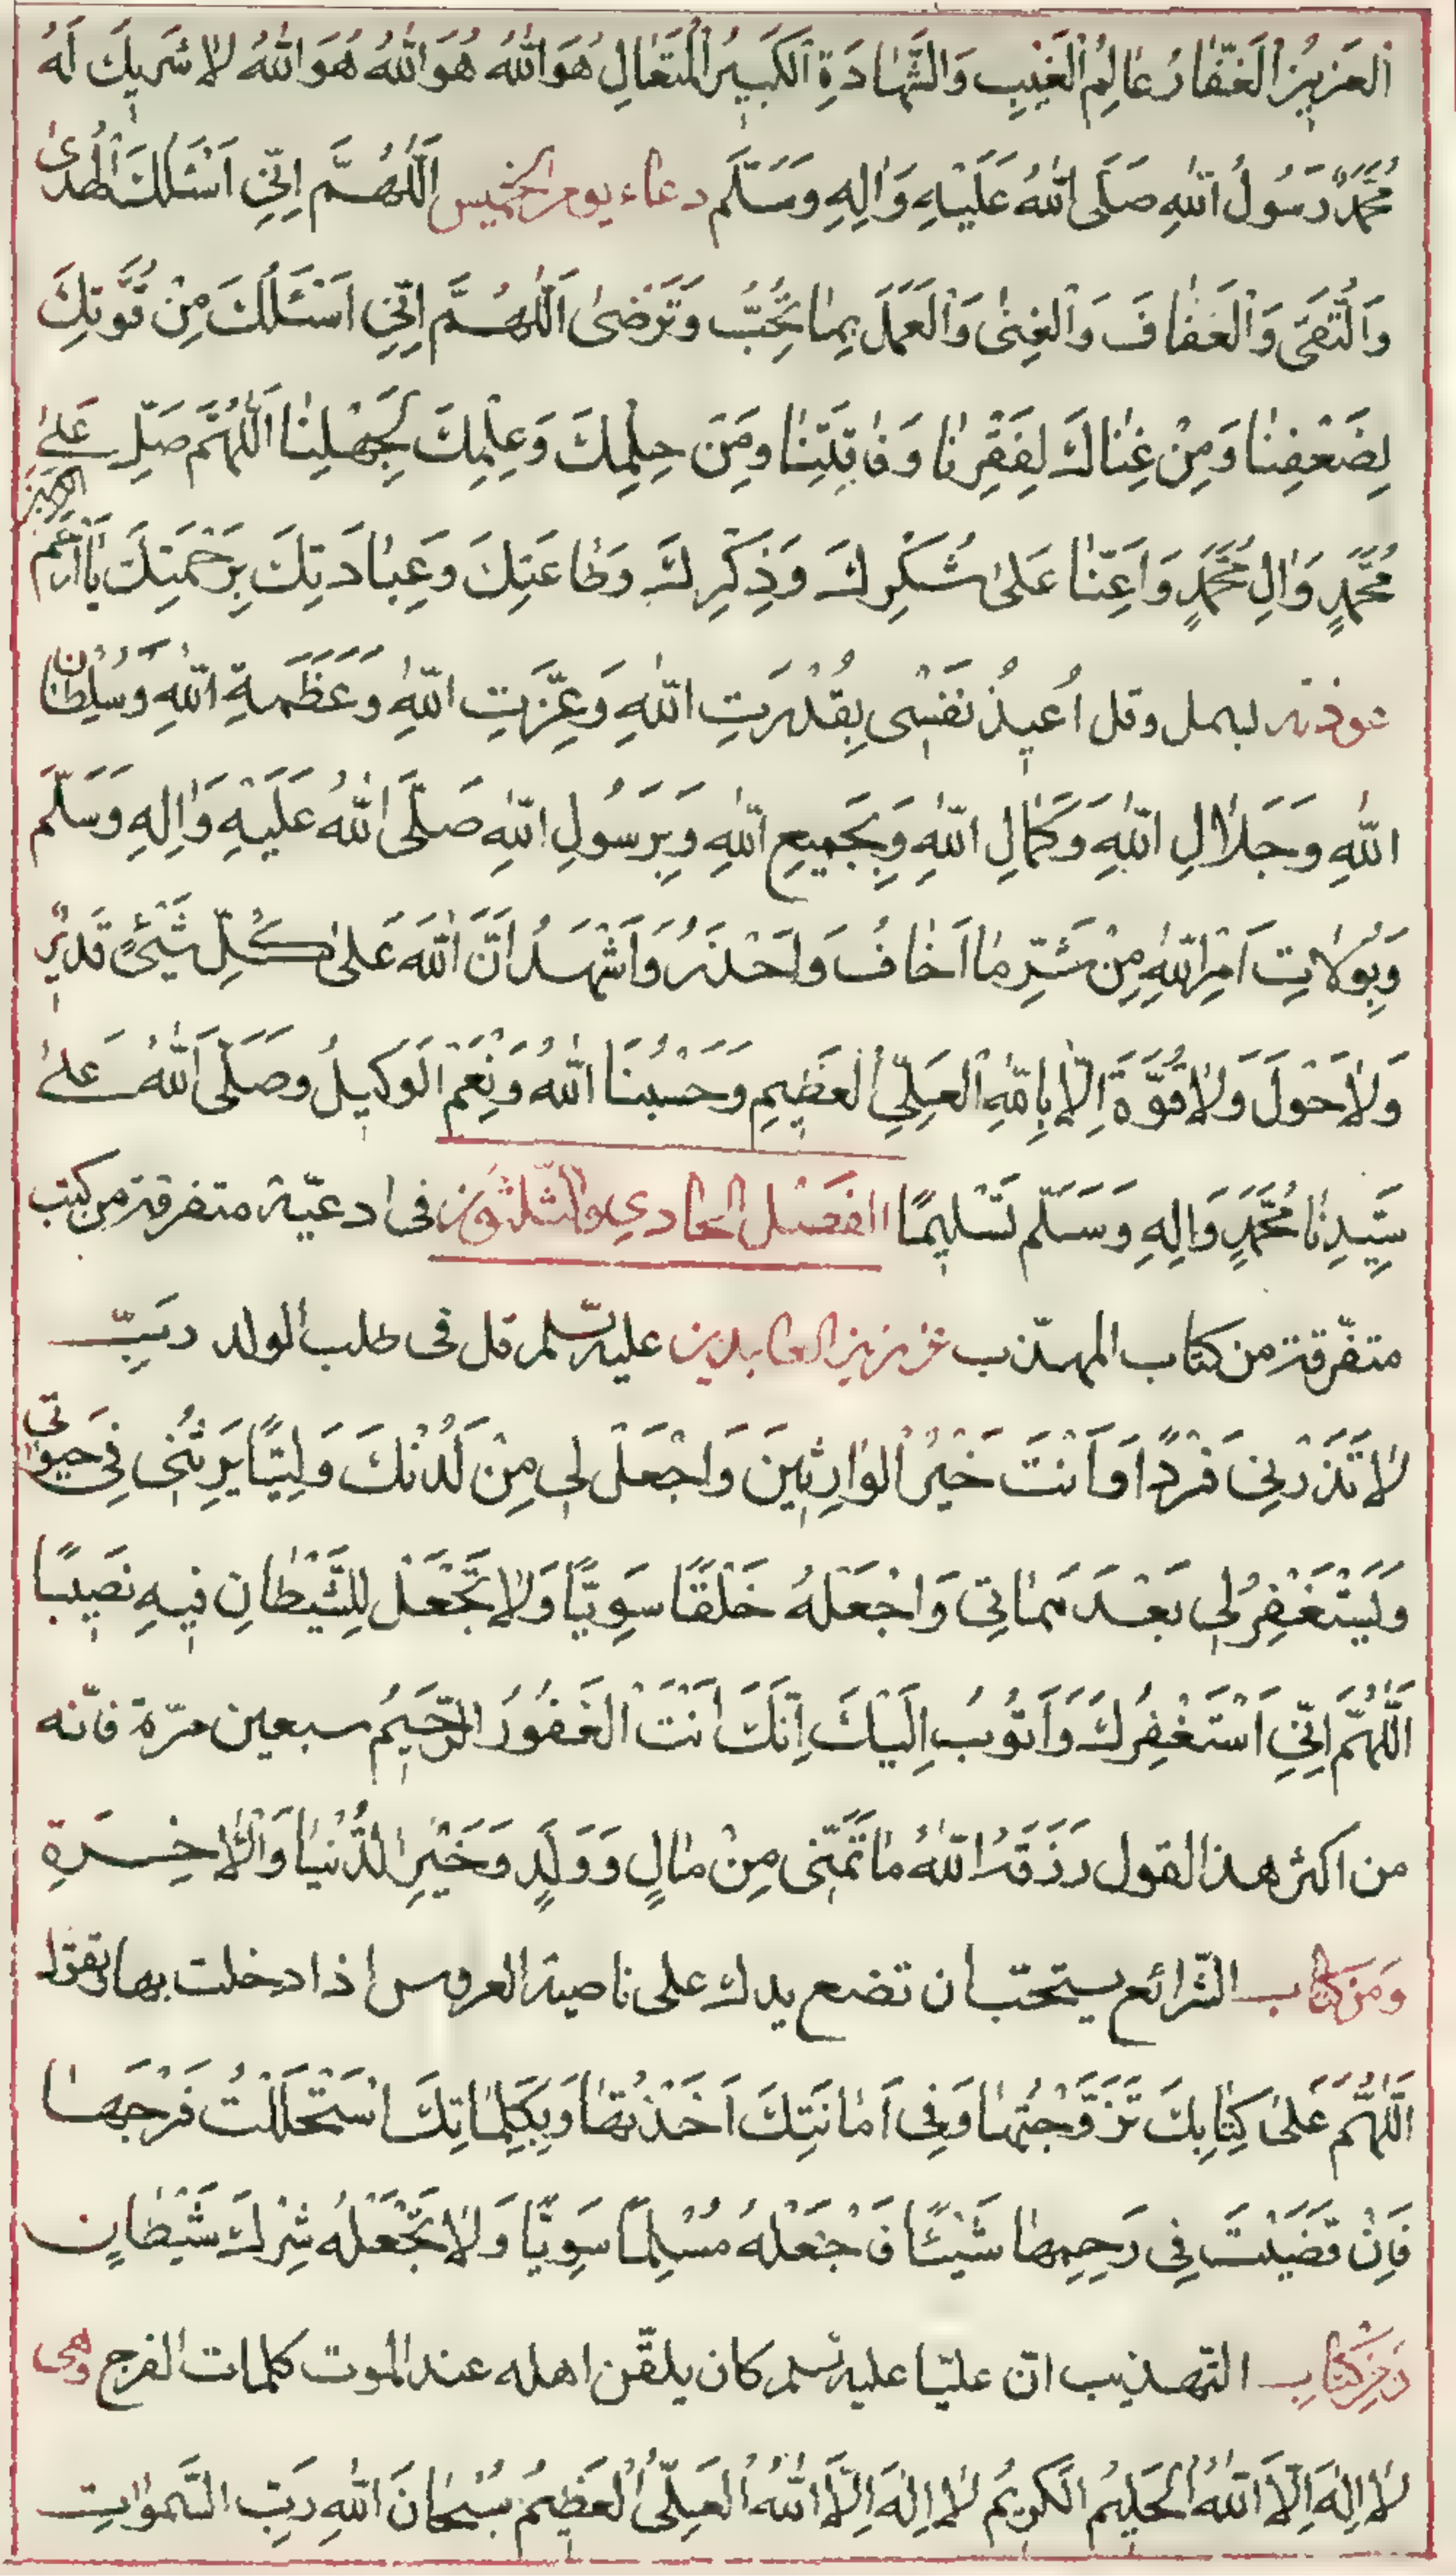 اَلْعَزِيزُ الْغَفّٰارُ عٰالِمُ الْغَيْبِ وَالشَّهٰادَةِ اَلْكَبِيرُ الْمُتَعٰالِ هُوَ اللّٰهُ هُوَ اللّٰهُ هُوَ اللّٰهُ لاٰ شَرِيكَ لَهُ
مُحَمَّدٌ رَسُولُ اللّٰهِ صَلَّى اللّٰهُ عَلَيْهِ وَاٰلِهِ وَسَلَّم دعاء يوم الخميس اَللّٰهُمَّ اِنّي اَسْئَلُكَ الْهُدىٰ
وَالتُّقىٰ وَالْعَفٰافَ وَالْغِنىٰ وَالْعَمَلَ بِمٰا تُحِبُّ وَتَرْضىٰ اَللّٰهُمَّ اِنّي اَسْئَلُكَ مِنْ قُوَّتِكَ
لِضَعْفِنٰا وَمِنْ غِنٰاكَ لِفَقْرِنٰا وَفٰاقَتِنٰا وَمِنْ حِلْمِكَ وَعِلْمِكَ لِجَهْلِنٰا اَللّٰهُمَّ صَلِّ عَلىٰ
مُحَمَّدٍ وَاٰلِ مُحَمَّدٍ وَاَعِنّٰا عَلىٰ شُكْرِكَ وَذِكْرِكَ وَطٰاعَتِكَ وَعِبٰادَتِكَ بِرَحْمَتِكَ يٰا اَرْحَمَ الرّٰحمين
عوذته بسمل وقل اُعيذُ نَفْسي بِقُدْرَتِ اللّٰهِ وَعِزَّتِ اللّٰهِ وَعَظَمَةِ اللّٰهِ وَسُلْطٰانِ
اللّٰهِ وَجَلاٰلِ اللّٰهِ وَكَمٰالِ اللّٰهِ وَبِجَميعِ اللّٰهِ وَبِرَسُولِ اللّٰهِ صَلَّى اللّٰهُ عَلَيْهِ وَاٰلِهِ وَسَلَّمَ
وَبِوُلاٰتِ اَمْرِ اللّٰهِ مِنْ شَرِّ مٰا اَخٰافُ وَاَحْذَرُ وَاَشْهَدُ اَنَّ اللّٰهَ عَلىٰ كُلِّ شَيْئٍ قَديرٌ
وَلاٰ حَوْلَ وَلاٰ قُوَّةَ اِلاّٰ بِاللّٰهِ الْعَلِيِّ الْعَظيمِ وَحَسْبُنَا اللّٰهُ وَنِعْمَ الْوَكيلُ وَصَلَّى اللّٰهُ عَلىٰ
سَيِّدِنٰا مُحَمَّدٍ وَاٰلِهِ وَسَلَّم تَسْليمًا الفصل الحادي والثلثون في ادعيّة متفرقة من كتب
متفّرقة من كتاب المهذّب عن زين العابدين عليه السّلم قل في طلب الولد رَبِّ
لاٰ تَذَرْني فَرْدًا وَاَنْتَ خَيْرُ الْوٰارِثينَ وَاجْعَلْ لي مِنْ لَدُنْكَ وَلِيًّا يَرِثُني في حَيٰوتي
وَيَسْتَغْفِرُ لي بَعْدَ مَمٰاتي وَاجْعَلْهُ خَلْقًا سَوِيًّا وَلاٰ تَجْعَلْ لِلشَّيْطٰانِ فيهِ نَصيبًا
اَللّٰهُمَّ اِنّي اَسْتَغْفِرُكَ وَاَتُوبُ اِلَيْكَ اِنَّكَ اَنْتَ الْغَفُورُ الرَّحيمُ سبعين مرّة فانّه
من اكثر هذا القول رَزَقَهُ اللّٰهُ مٰا تَمَنّى مِنْ مٰالٍ وَوَلَدٍ وَخَيْرِ الدُّنْيٰا وَالْاٰخِرَةِ
ومن كتاب الشّرائع يستحّب ان تضع يدك على ناصية العروس اذا دخلت بها وتقول
اَللّٰهُمَّ عَلىٰ كِتٰابِكَ تَزَوَّجْتُهٰا وَفي اَمٰانَتِكَ اَخَذْتُهٰا وَبِكَلِمٰاتِكَ اسْتَحْلَلْتُ فَرْجَهٰا
فَاِنْ قَضَيْتَ في رَحِمِهٰا شَيْئًا فَاجْعَلْهُ مُسْلِمًا سَوِيًّا وَلاٰ تَجْعَلْهُ شِرْكَ شَيْطٰانٍ
ومن كتاب التهذيب انّ عليّا عليه السلم كان يلقّن اهله عند الموت كلمات الفرج وهى
لاٰ اِلٰهَ اِلاَّ اللّٰهُ الْحَليمُ الْكَريمُ لاٰ اِلٰهَ اِلاَّ اللّٰهُ الْعَلِيُّ الْعَظيمُ سُبْحٰانَ اللّٰهِ رَبِّ السَّمٰوٰاتِ